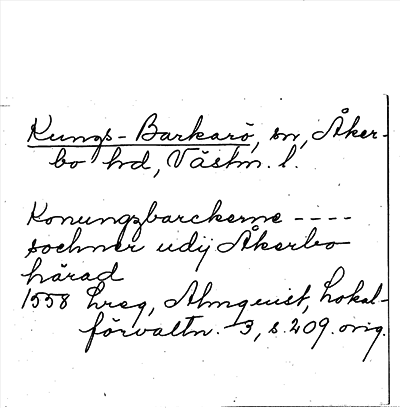 Kungs-Barkarö, sn, Åker-
bo hd, Västm. l.
Konungzbarckerne ----
sochner udij Åkerbo
härad
1558 hreg, Almquist, Lokal-
förvaltn. 3, s. 209. orig.